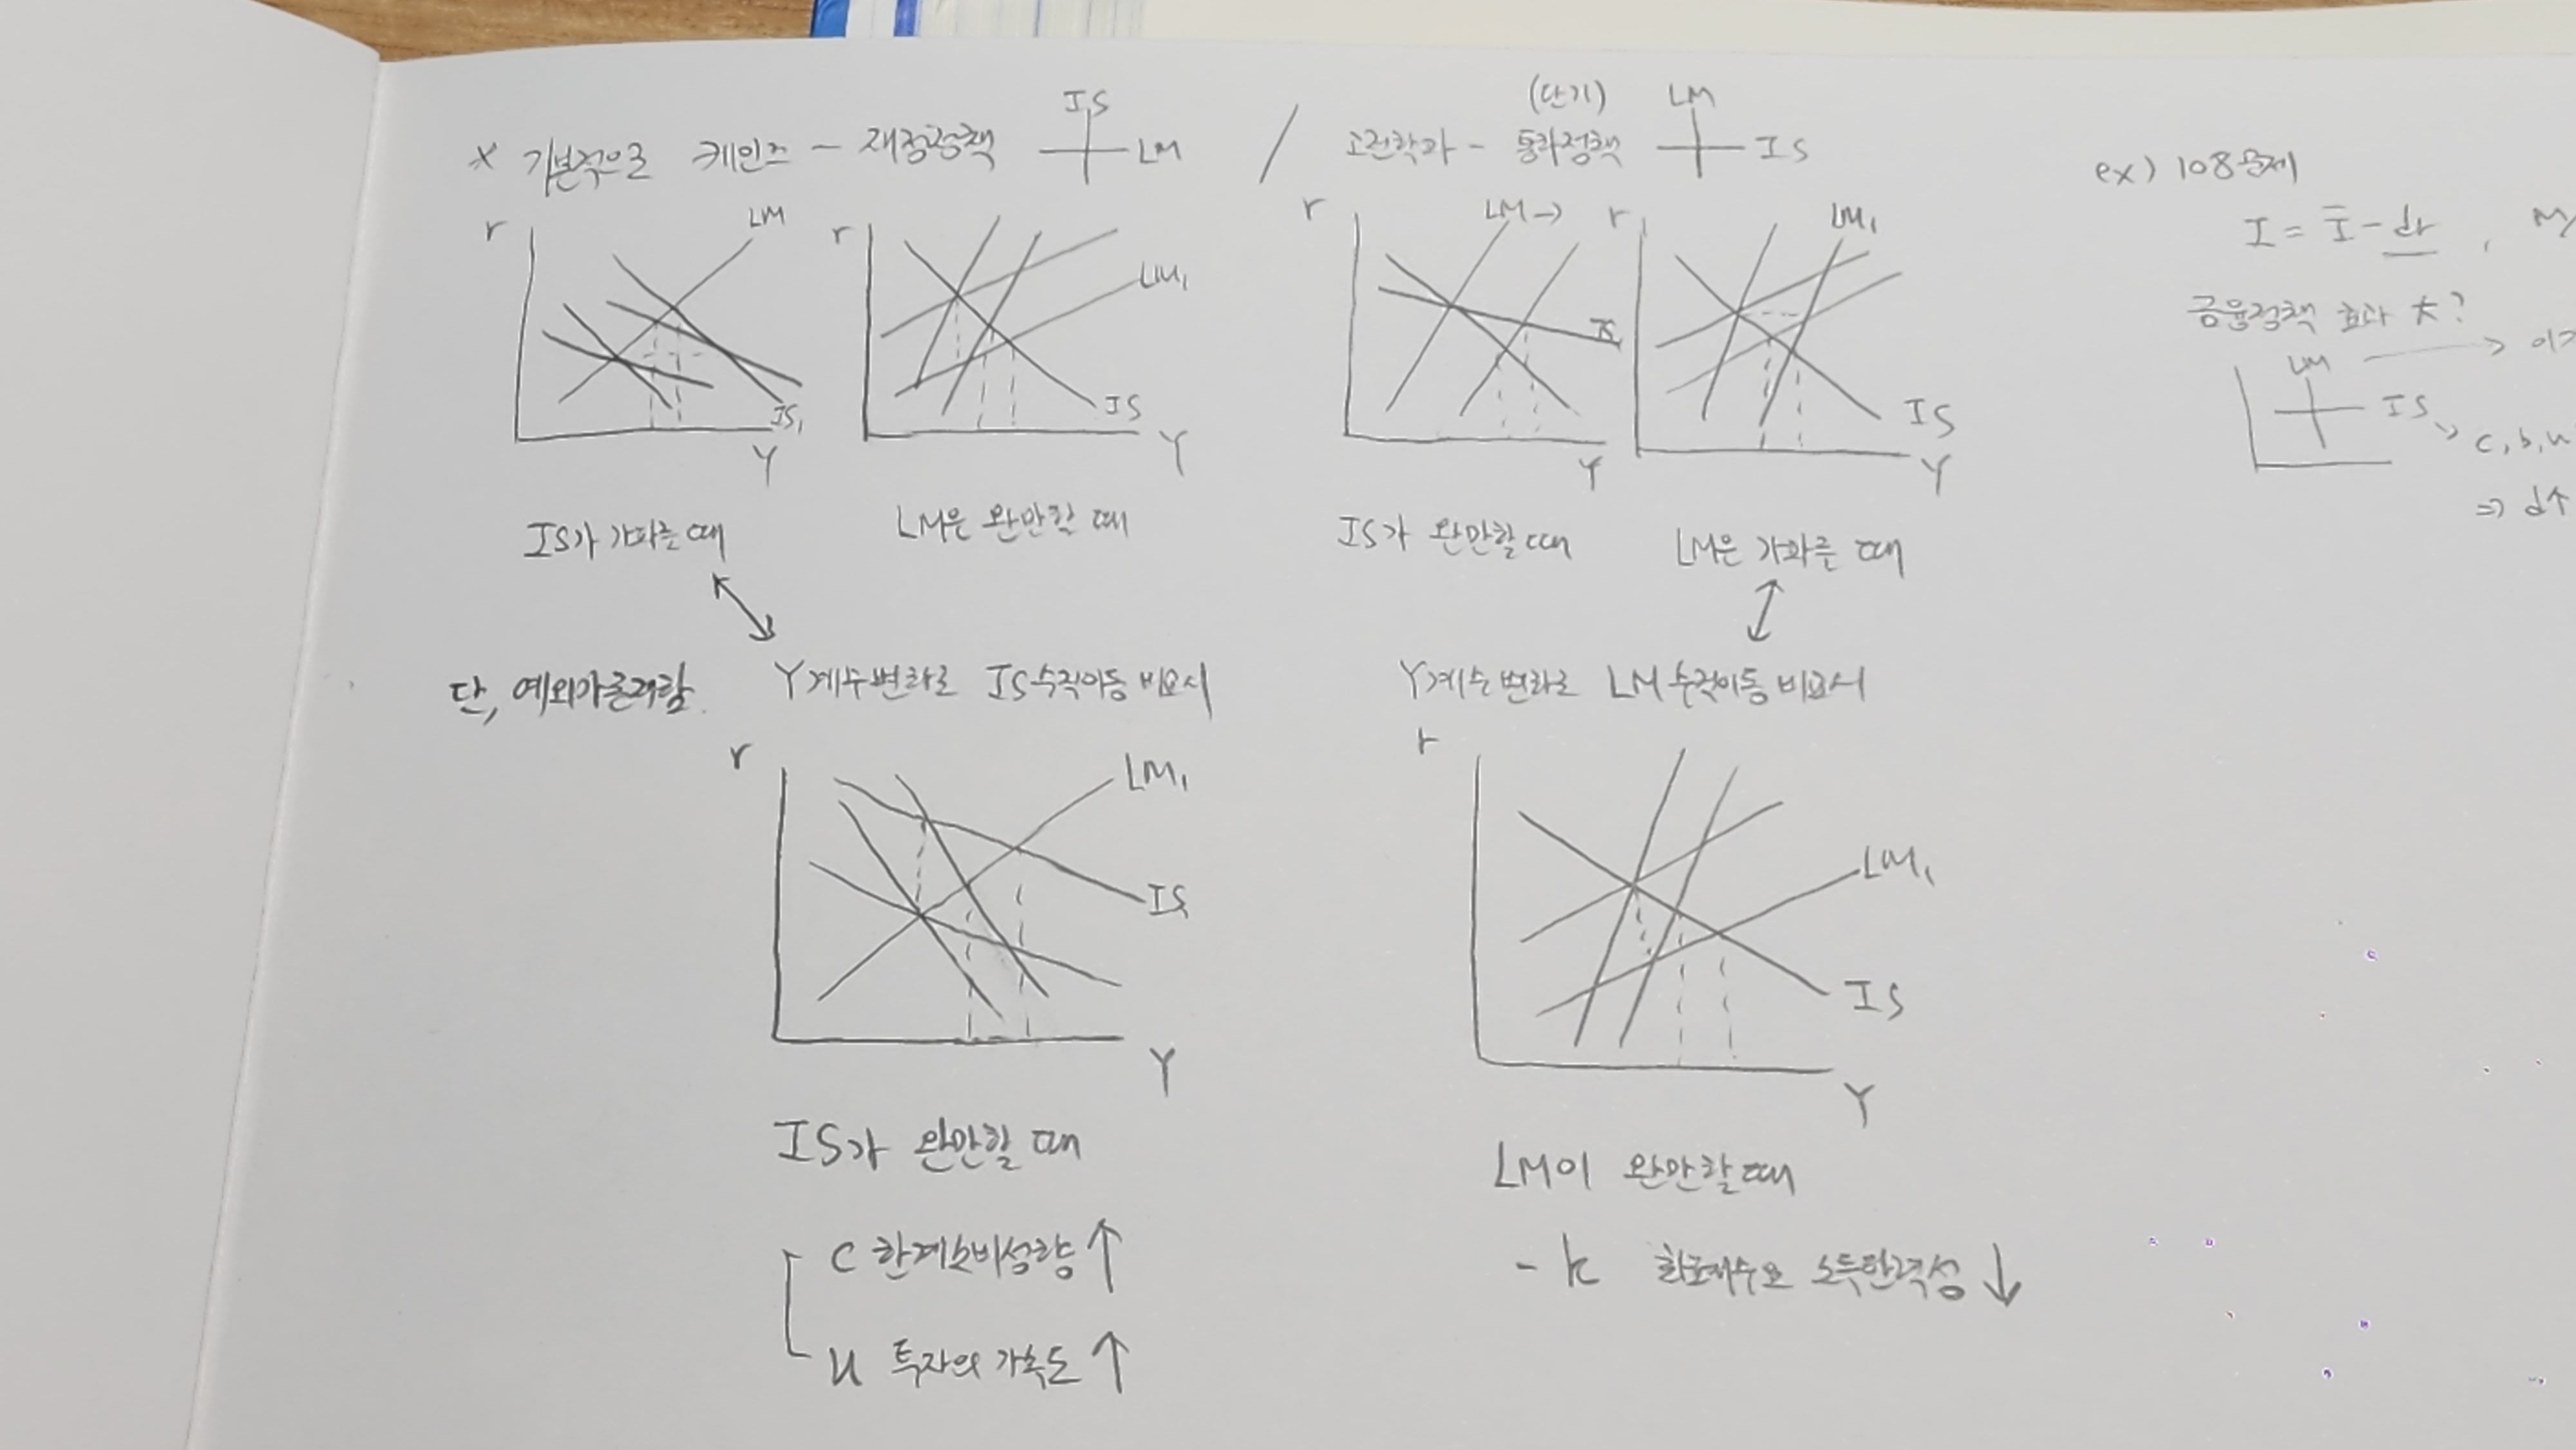 × 기본적으로 케인즈 - 재정정책 IS LM / 고전학파 - (단기) 통화정책 LM IS
r LM IS₁ Y
r LM₁ IS Y
r LM→ IS Y
r LM₁ IS Y
IS가 가파를 때 LM은 완만할 때 IS가 완만할 때 LM은 가파를 때
단, 예외가 존재함. Y계수변화로 IS수직이동 비교시 Y계수변화로 LM수직이동 비교시
r LM₁ IS Y
r LM₁ IS Y
IS가 완만할 때 LM이 완만할 때
C 한계소비성향 ↑ - k 화폐수요 소득탄력성 ↓
u 투자의 가속도 ↑
ex) 108문제
I = Ī - dr , M/
금융정책 효과 大?
LM → 이
IS → c, b, u
⇒ d↑